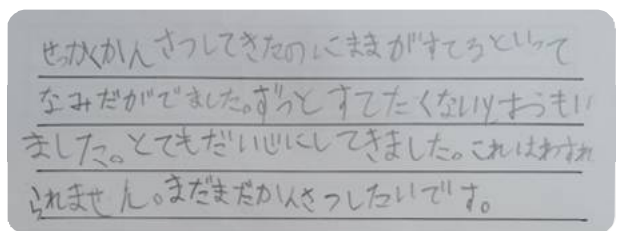 せっかくかんさつしてきたのにままがすてるといって
なみだがでました。ずっとすてたくないとおもい
ました。とてもだい心にしてきました。これはわすれ
られません。まだまだかんさつしたいです。